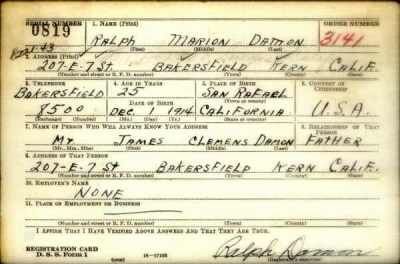 SERIAL NUMBER 1. NAME (Print) ORDER NUMBER
0819 RALPH MARION DAMON 3141
1-43 (First) (Middle) (Last)
2. ADDRESS (Print)
207-E-7 St. BAKERSFIELD KERN CALIF.
(Number and street or R. F. D. number) (Town) (County) (State)
3. TELEPHONE 4. AGE IN YEARS 5. PLACE OF BIRTH 6. COUNTRY OF CITIZENSHIP
BAKERSFIELD 25 SAN RAFAEL
DATE OF BIRTH (Town or county)
9500 DEC. 1914 CALIFORNIA U.S.A.
(Exchange) (Number) (Mo.) (Day) (Yr.) (State or country)
7. NAME OF PERSON WHO WILL ALWAYS KNOW YOUR ADDRESS 8. RELATIONSHIP OF THAT PERSON
MR JAMES CLEMENS DAMON FATHER
(Mr., Mrs., Miss) (First) (Middle) (Last)
9. ADDRESS OF THAT PERSON
207-E-7 St BAKERSFIELD KERN CALIF.
(Number and street or R. F. D. number) (Town) (County) (State)
10. EMPLOYER'S NAME
NONE
11. PLACE OF EMPLOYMENT OR BUSINESS
(Number and street or R. F. D. number) (Town) (County) (State)
I AFFIRM THAT I HAVE VERIFIED ABOVE ANSWERS AND THAT THEY ARE TRUE.
REGISTRATION CARD
D. S. S. Form 1 16-17105 Ralph Damon